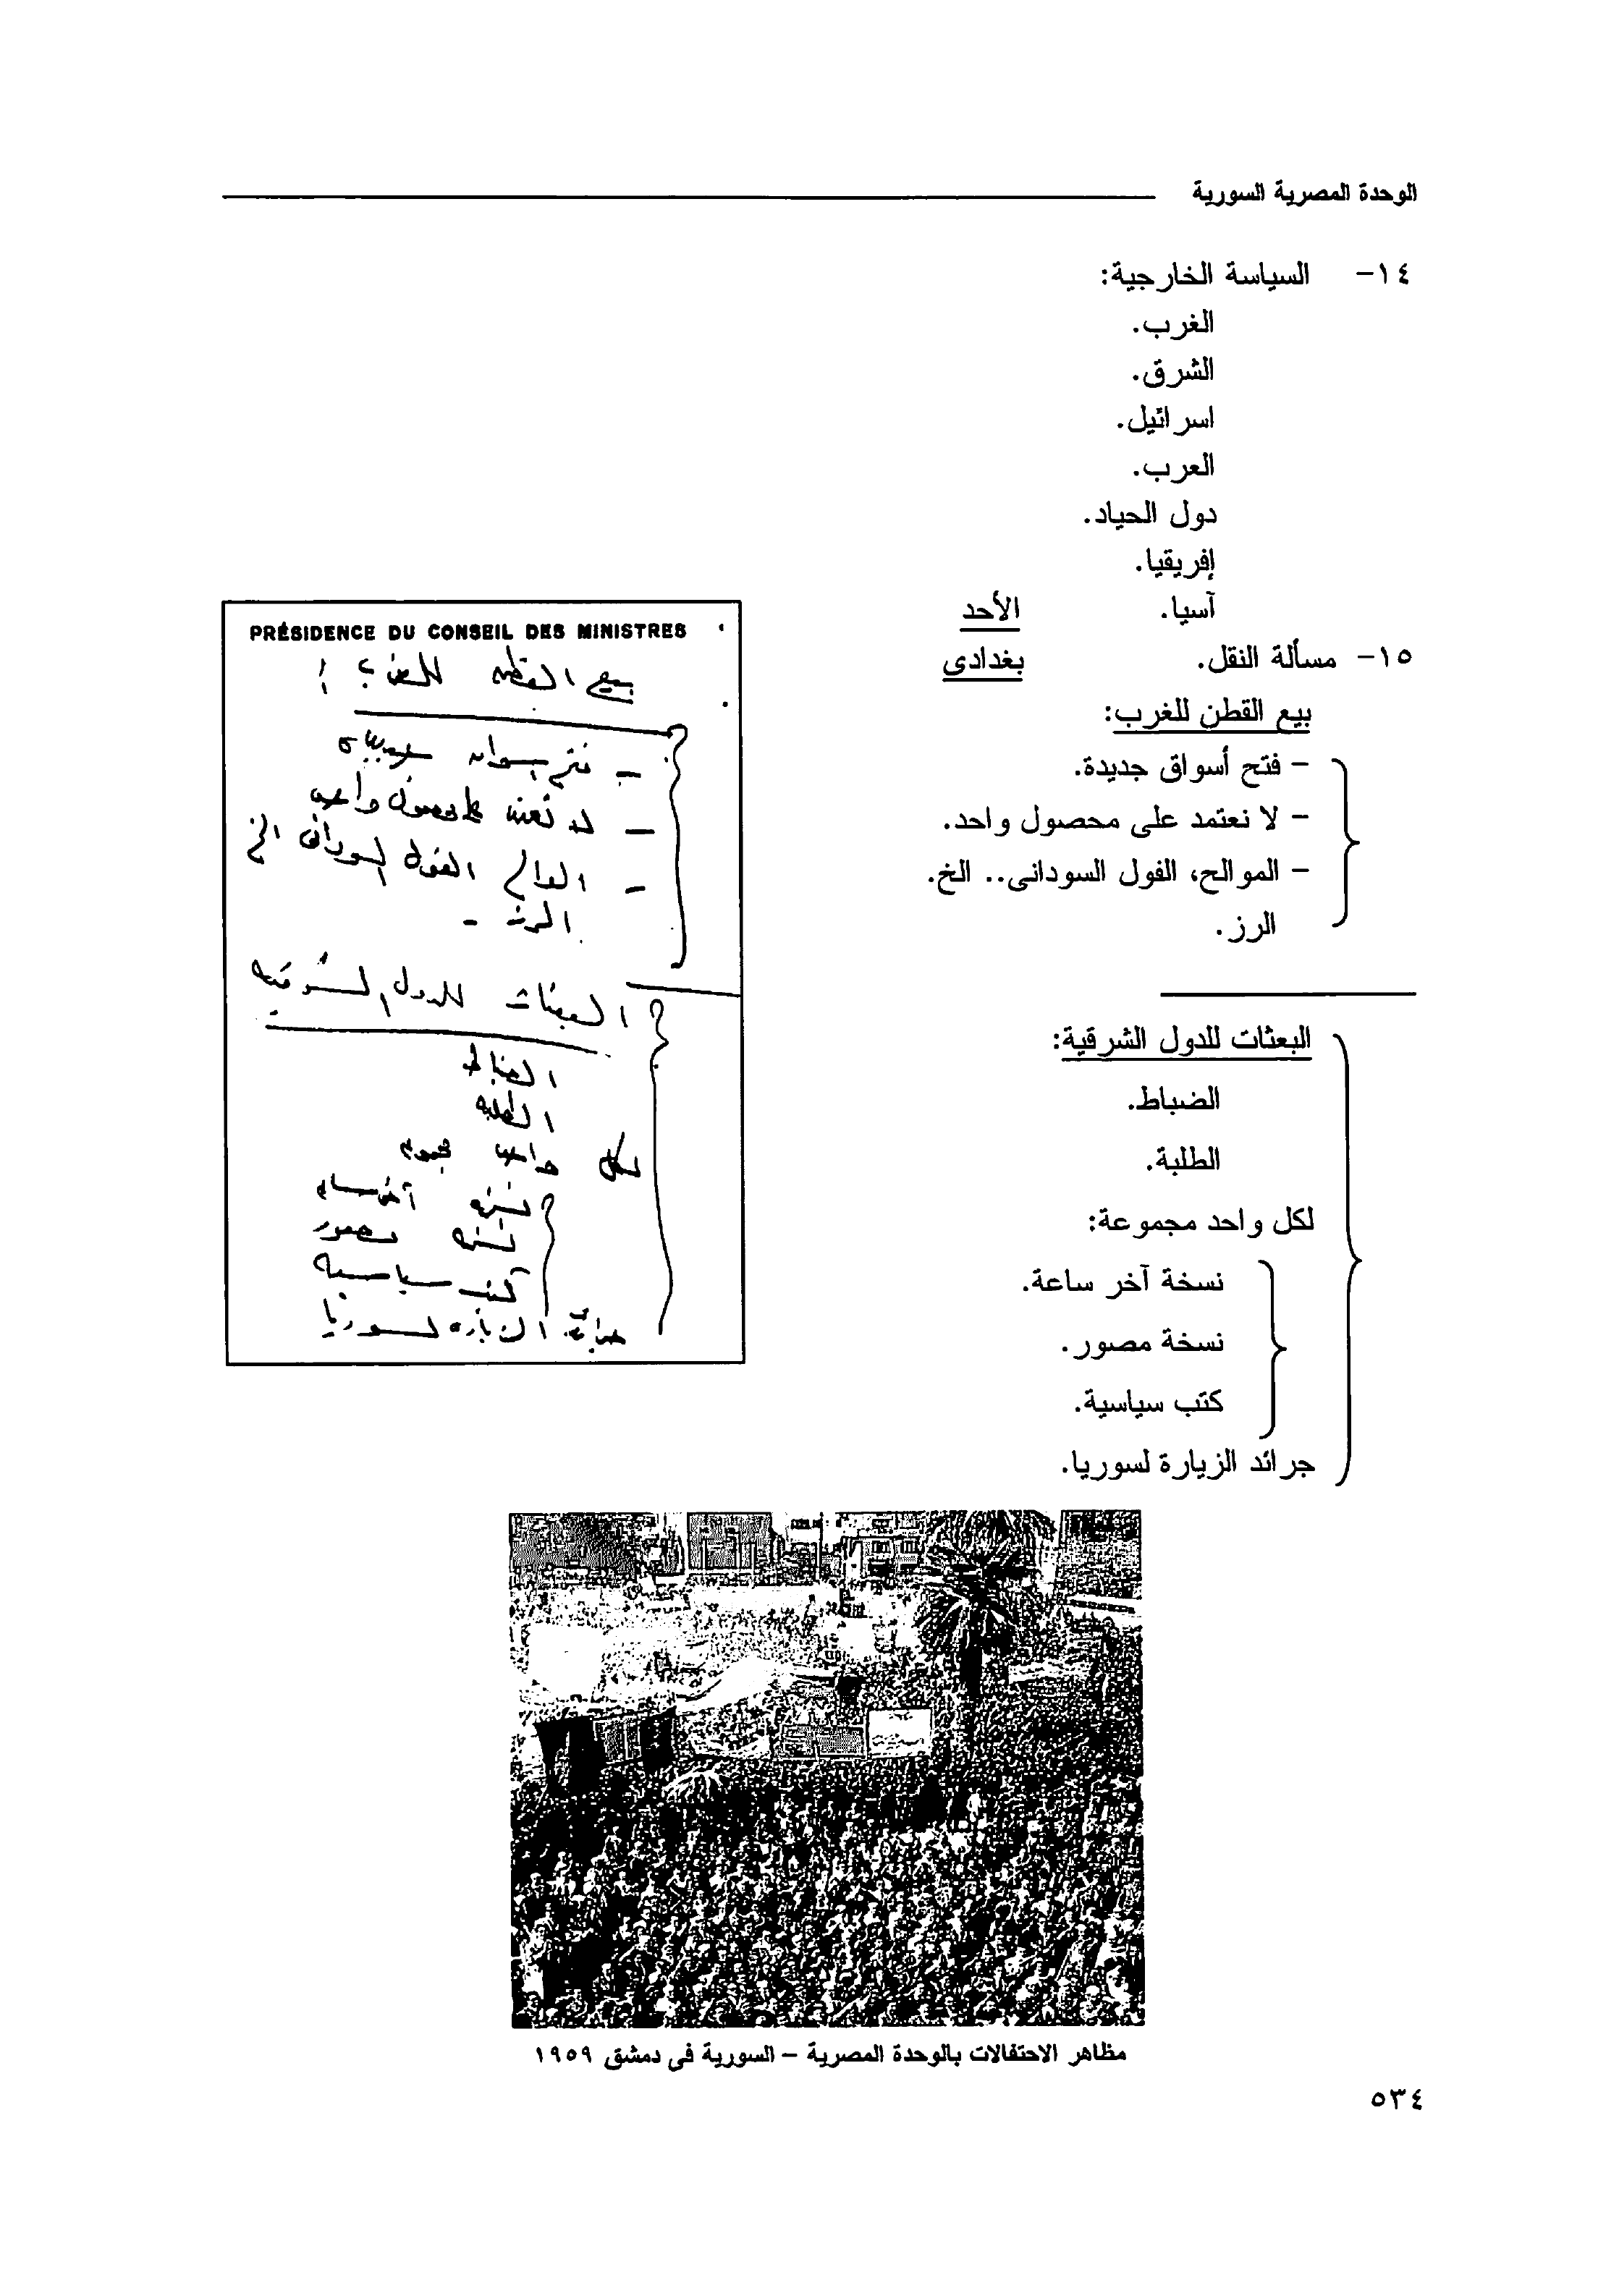 الوحدة المصرية السورية
١٤- السياسة الخارجية:
الغرب.
الشرق.
اسرائيل.
العرب.
دول الحياد.
إفريقيا.
آسيا. الأحد
١٥- مسألة النقل. بغدادى
بيع القطن للغرب:
- فتح أسواق جديدة.
- لا نعتمد على محصول واحد.
- الموالح، الفول السودانى.. الخ.
الرز.
البعثات للدول الشرقية:
الضباط.
الطلبة.
لكل واحد مجموعة:
نسخة آخر ساعة.
نسخة مصور.
كتب سياسية.
جرائد الزيارة لسوريا.
PRÉSIDENCE DU CONSEIL DES MINISTRES
بيع القطن للغرب :
- فتح اسواق جديدة
- لا نعتمد على محصول واحد
- الموالح الفول السودانى الخ
الرز -
البعثات للدول الشرقية
الضباط
الطلبة
لكل واحد مجموعة
نسخة آخر ساعة
نسخة مصور
كتب سياسية
جرائد الزيارة لسوريا
مظاهر الاحتفالات بالوحدة المصرية – السورية فى دمشق ١٩٥٩
٥٣٤